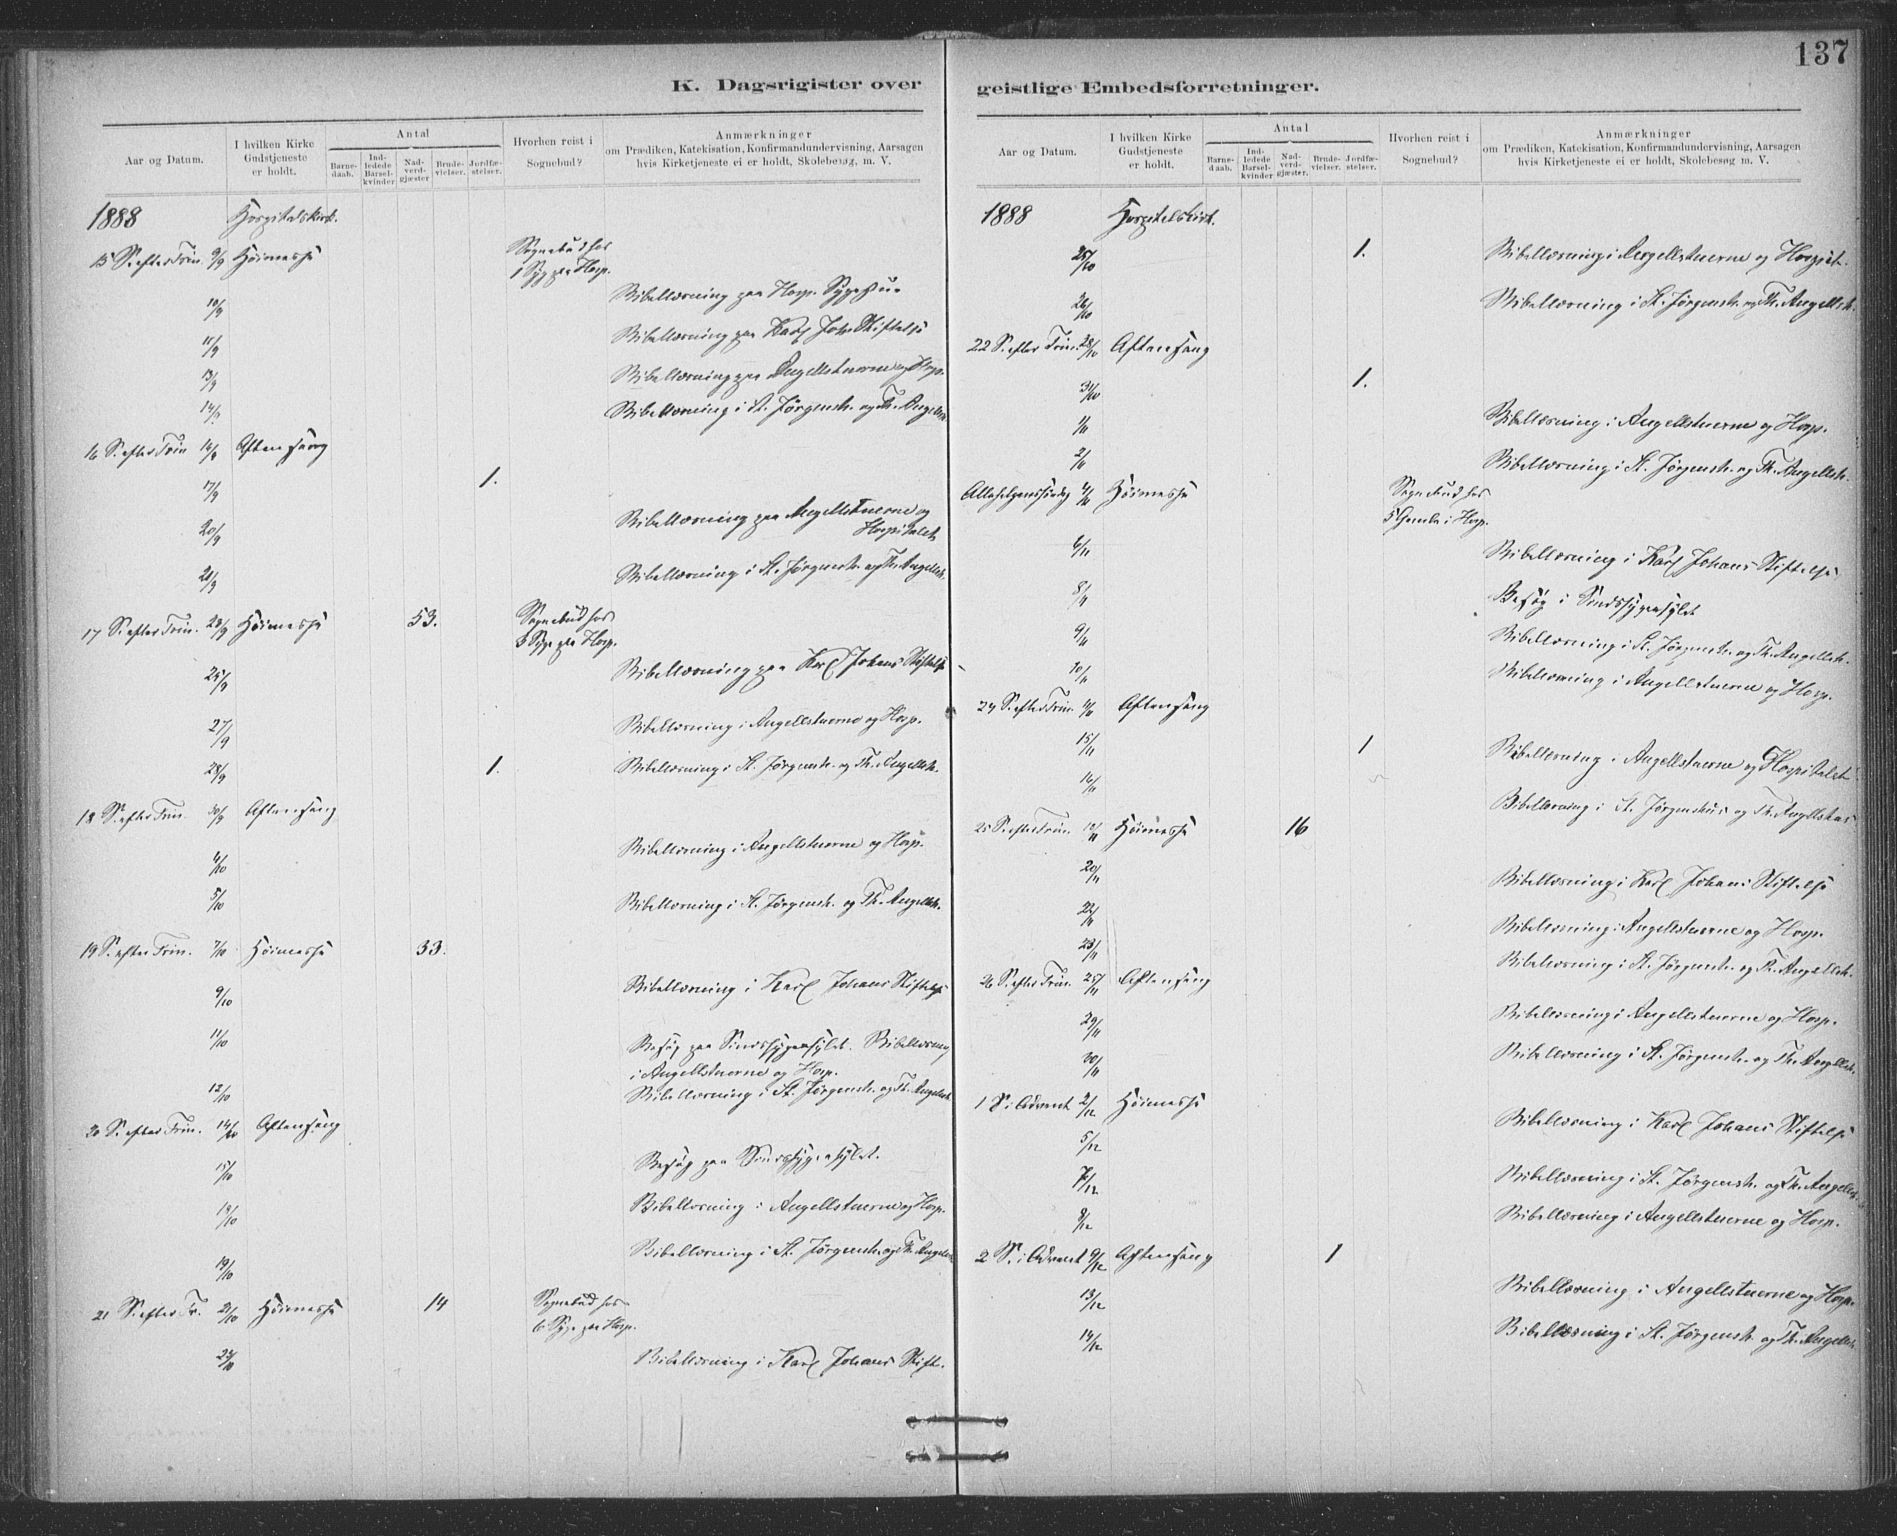 137
K. Dagsrigister over geistlige Embedsforretninger.
Aar og Datum.
I hvilken Kirke Gudstjeneste er holdt.
Antal
Barne-daab.
Ind-ledede Barsel-kvinder
Nad-verd-gjæster
Brude-vielser.
Jordfæ-stelser.
Hvorhen reist i Sognebud?
Anmærkninger
om Prædiken, Katekisation, Konfirmandundervisning, Aarsagen
hvis Kirketjeneste ei er holdt, Skolebesøg, m. V.
1888 Hospitalskirk.
15 S. efter Trin. 9/9 Høimesse Sognebud hos
1 Syg paa Hosp.
10/9 Bibellæsning paa Hosp. Sygestue
11/9 Bibellæsning paa Karl Joh. Stiftelse
13/9 Bibellæsning paa Angellstuerne og Hosp.
14/9 Bibellæsning i St. Jørgensh. og Th. Angellsh.
16 S. efter Trin 16/9 Aftensang
17/9 1.
20/9 Bibellæsning paa Angellstuerne og
Hospitalet
21/9 Bibellæsning i St. Jørgensh. og Th. Angellsh.
17 S. efter Trin. 23/9 Høimesse 53. Sognebud hos
3 Syge paa Hosp.
25/9 Bibellæsning paa Karl Johans Stiftelse
27/9 Bibellæsning i Angellstuerne og Hosp.
28/9 1. Bibellæsning i St. Jørgensh. og Th. Angellsh.
18 S. efter Trin. 30/9 Aftensang
4/10 Bibellæsning i Angellstuerne og Hosp.
5/10 Bibellæsning i St. Jørgensh. og Th. Angellsh.
19 S. efter Trin. 7/10 Høimesse 33.
9/10 Bibellæsning i Karl Johans Stiftelse
11/10 Besøg paa Sindssygeasylet. Bibellæsning
i Angellstuerne og Hosp.
12/10 Bibellæsning i St. Jørgensh. og Th. Angellsh.
20 S. efter Trin. 14/10 Aftensang
15/10 Besøg paa Sindssygeasylet.
18/10 Bibellæsning i Angellstuerne og Hosp.
19/10 Bibellæsning i St. Jørgensh. og Th. Angellsh.
21 S. efter Tr. 21/10 Høimesse 14 Sognebud hos
6 Syge paa Hosp.
23/10 Bibellæsning i Karl Johans Stift.
geistlige Embedsforretninger.
Aar og Datum.
I hvilken Kirke Gudstjeneste er holdt.
Antal
Barne-daab.
Ind-ledede Barsel-kvinder
Nad-verd-gjæster.
Brude-vielser.
Jordfæ-stelser.
Hvorhen reist i Sognebud?
Anmærkninger
om Prædiken, Katekisation, Konfirmandundervisning, Aarsagen
hvis Kirketjeneste ei er holdt, Skolebesøg, m. V.
1888 Hospitalskirk.
25/10 1. Bibellæsning i Angellstuerne og Hospit.
26/10 Bibellæsning i St. Jørgensh. og Th. Angellsh.
22 S. efter Trin. 28/10 Aftensang
31/10 1.
1/11 Bibellæsning i Angellstuerne og Hosp.
2/11 Bibellæsning i St. Jørgensh. og Th. Angellsh.
Allehelgenssøndag 4/11 Høimesse Sognebud hos
5 Gamle i Hosp.
6/11 Bibellæsning i Karl Johans Stiftelse
8/11 Besøg i Sindssygeasylet
9/11 Bibellæsning i St. Jørgensh. og Th. Angellsh.
10/11 Bibellæsning i Angellstuerne og Hosp.
24 S. efter Trin. 11/11 Aftensang
15/11 1 Bibellæsning i Angellstuerne og Hospitalet
16/11 Bibellæsning i St. Jørgenshus og Th. Angellshus
25 S. efter Trin. 18/11 Høimesse 16
20/11 Bibellæsning i Karl Johans Stiftelse
22/11 Bibellæsning i Angellstuerne og Hosp.
23/11 Bibellæsning i St. Jørgensh. og Th. Angellsh.
26 S. efter Trin. 25/11 Aftensang
29/11 Bibellæsning i Angellstuerne og Hosp.
30/11 Bibellæsning i St. Jørgensh. og Th. Angellsh.
1 S. i Advent 2/12 Høimesse
5/12 Bibellæsning i Karl Johans Stiftelse
7/12 Bibellæsning i St. Jørgensh. og Th. Angellsh.
8/12 Bibellæsning i Angellstuerne og Hosp.
2 S. i Advent 9/12 Aftensang 1
13/12 Bibellæsning i Angellstuerne og Hosp.
14/12 Bibellæsning i St. Jørgensh. og Th. Angellsh.